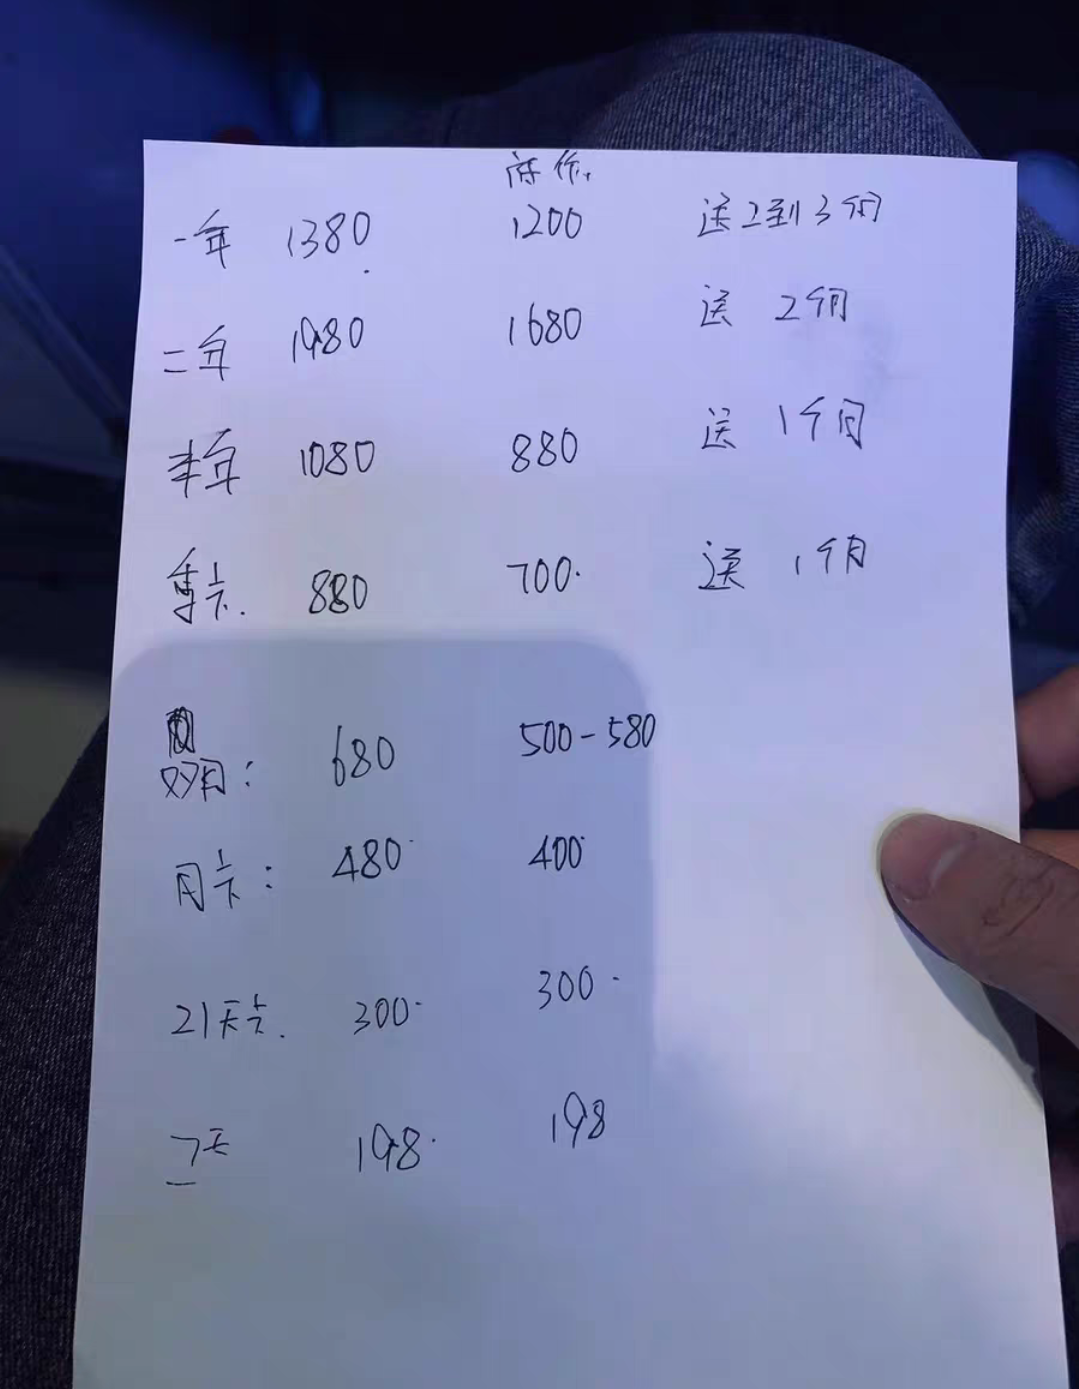 底价
一年 1380 1200 送2到3个月
二年 1980 1680 送 2个月
半年 1080 880 送 1个月
季卡. 880 700. 送 1个月
双月: 680 500-580
月卡: 480 400
21天卡. 300 300
7天 198 198